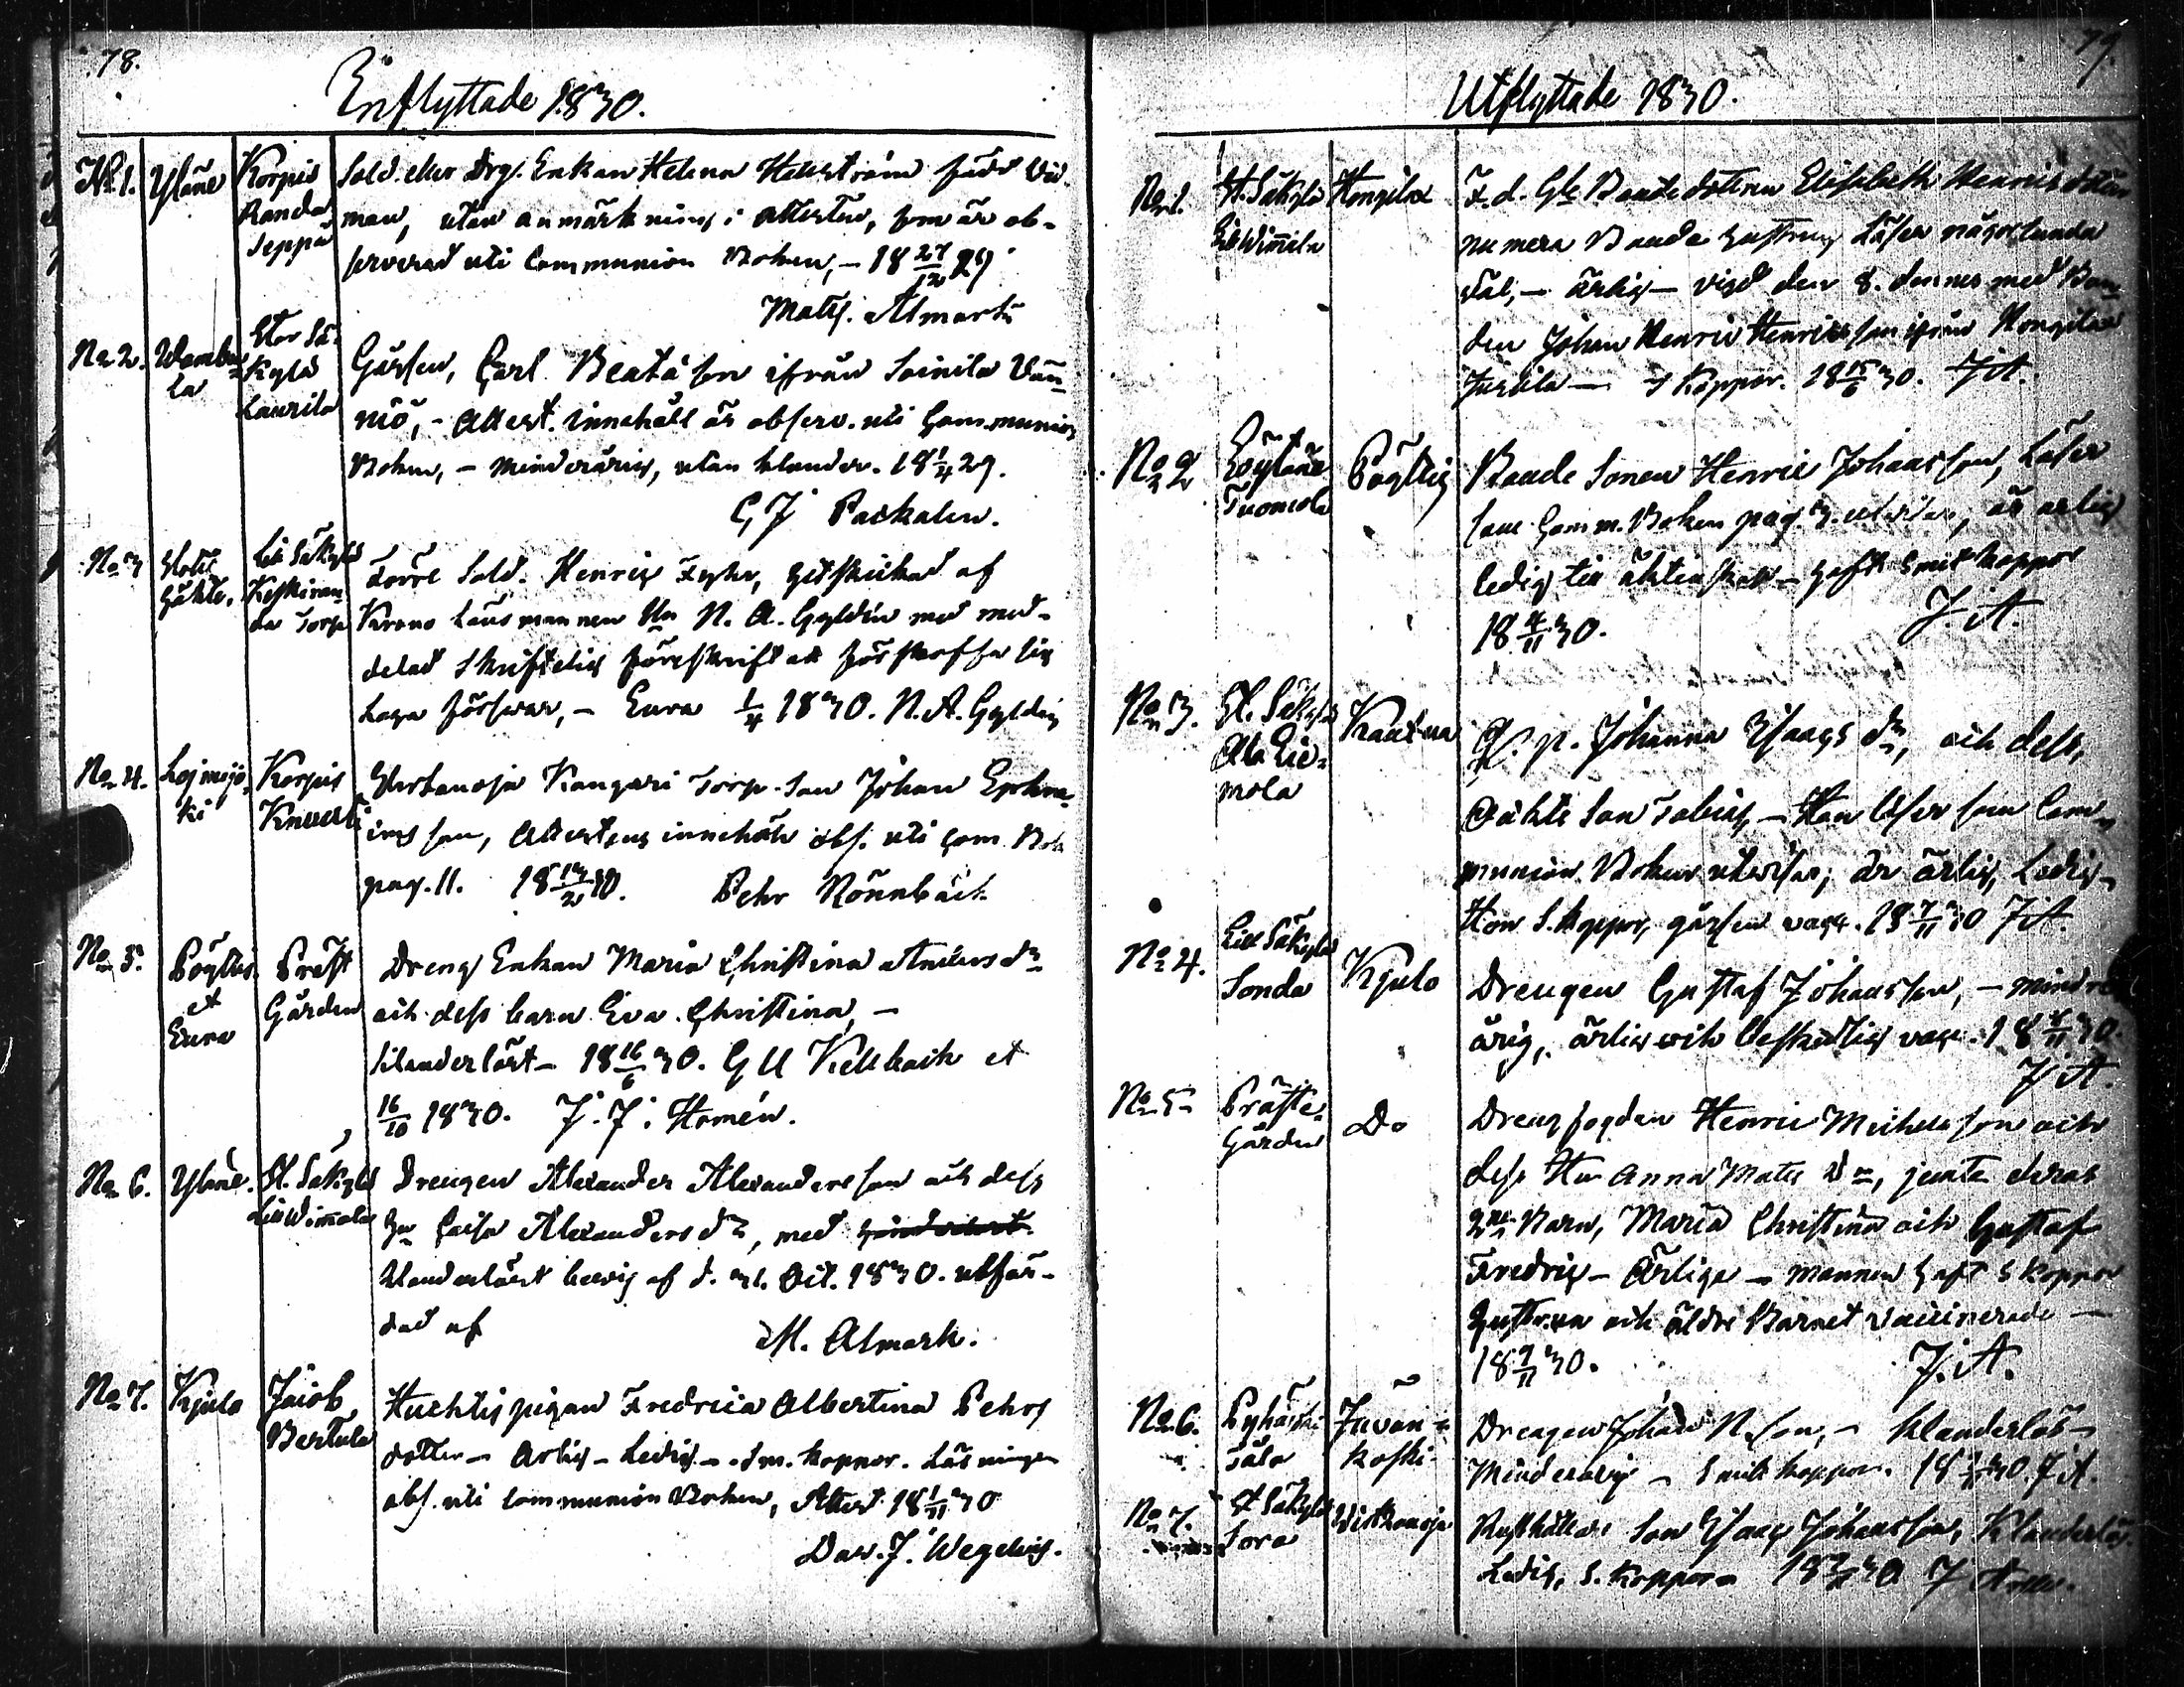 78.
Inflyttade 1830.
No 1. Yläne Korpis Randa Seppä
Sold. eller Drg. Enkan Helena Hellström född Wid-
man, utan anmärkning i attesten, som är ob-
serverad uti Communion Boken, - 18 27/12 29
Matts. Almark
No 2. Wambu la Stor Sä- kylä Laurila
Gossen, Carl Beatä son ifrån Soinila Vän
niö, - Attest. innehåll är observ. uti Communion
Boken, - minderårig, utan klander. 18 1/4 29.
G J Packalen.
No 3 Lill Säkylä Keskiran da Torp
Förre Sold. Henrig Fyhr, hitskickad af
Krono Länsmannen Hr N. A. Gyldén med med-
delad skriftelig föreskrift att förskaffa sig
laga försvar, - Eura 1/4 1830. N. A. Gyldén
No 4. Lojmijo- ki Korpis Knuuti
Wirtanoja Kangari Torp. Son Johan Ephra-
ims son, Attestens innehåll obs. uti Com. Bok
pag. 11. 18 13/2 30. Pehr Rönnbäck
No 5. Pöytis et Eura Präst Gården
Dreng Enkan Maria Christina Anders dr
och dess barn Eva Christina, -
klanderlöst - 18 16/6 30. G U Kellback et
16/10 1830. J. J. Homén.
No 6. Yläne. St. Säkylä Lill Wimala
Drengen Alexander Alexandersson och dess
Hu Caisa Alexanders dr, med
klanderlöst bevis af d. 31. Oct. 1830. utfär-
dad af
M. Almark.
No 7. Kjulo Jacob Bertula
Huchtis pigan Fredrica Albertina Pehrs
dotter - Ärlig - Ledig - Sm. koppor. Läsningen
obs. uti Communion Boken, Attest 18 1/11 30
Dav. J. Wegelius.
79.
Utflyttade 1830.
No 1. St. Säkylä Hongilax
F. d. Gla Bonde dotren Elisabeth Henrics dotter
numera Bonde hustru Läser någorlunda
väl, - ärlig - vigd den 8. dennes med Bon-
den Johan Henric Henricsson ifrån Hongilax
Jussila - S Koppor. 18 15/6 30. J A.
No 2 Tuomola Pöyttis
Bonde Sonen Henric Johansson, Läser
som Comm. Boken pag. 3. utvisar, är ärlig
ledig till äktenskap - haft Smit koppor
18 4/11 30. J. A.
No 3. St. Säkylä Ala Lie- mola Kautua
Q. p. Johanna Isaacs dr, och dess
Oächte Son Tobias, - Hon läser som Com-
munion Boken utvisar, är ärlig, Ledig -
Hon S. koppor, gossen vacc. 18 7/11 30 J A.
No 4. Lill Säkylä Sonda Kjulo
Drengen Gustaf Johansson, - minder
årig, ärlig och beskedlig vacc. 18 8/11 30.
J A.
No 5 Präste- Gården Do
Drengfogden Henric Michelsson och
dess Hu Anna Matts dr, jemte deras
2ne Barn, Maria Christina och Gustaf
Fredrig - Ärliga - mannen haft S koppor
hustrun och äldre Barnet vaccinerade -
18 9/11 30. J. A.
No 6. Pyhäjoki Talo Juvan- koski
Drengen Johan N. son, - klanderlös -
Minderårig - Smitkoppor. 18 30 J A.
No 7. St Säkylä Sora Wirtanoja
Rusthållare Son Isaac Johansson, Klanderlös.
Ledig, S. Koppor 18 30 J